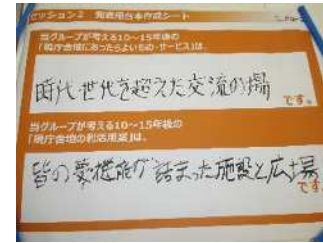 セッション2 発表用台本作成シート
当グループが考える10～15年後の
「現庁舎壇にあったらよいもの・サービス」は、
時代世代を超えた交流の場
です。
当グループが考える10～15年後の
「現庁舎壇の利活用案」は、
皆の夢機能が詰まった施設と広場
です